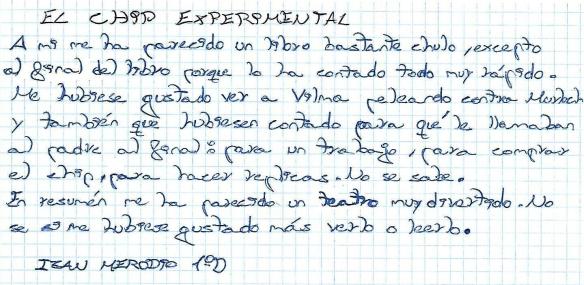 EL CHIP EXPERIMENTAL
A mi me ha parecido un libro bastante chulo, excepto
al final del libro porque lo ha contado todo muy rápido.
Me hubiese gustado ver a Vilma peleando contra
y también que hubiesen contado para qué le llamaban
al padre al final: para un trabajo, para comprar
el chip, para hacer replicas. No se sabe.
En resumén me ha parecido un teatro muy divertido. No
se si me hubiese gustado más verlo o leerlo.
IZAN MERODIO 1ºD